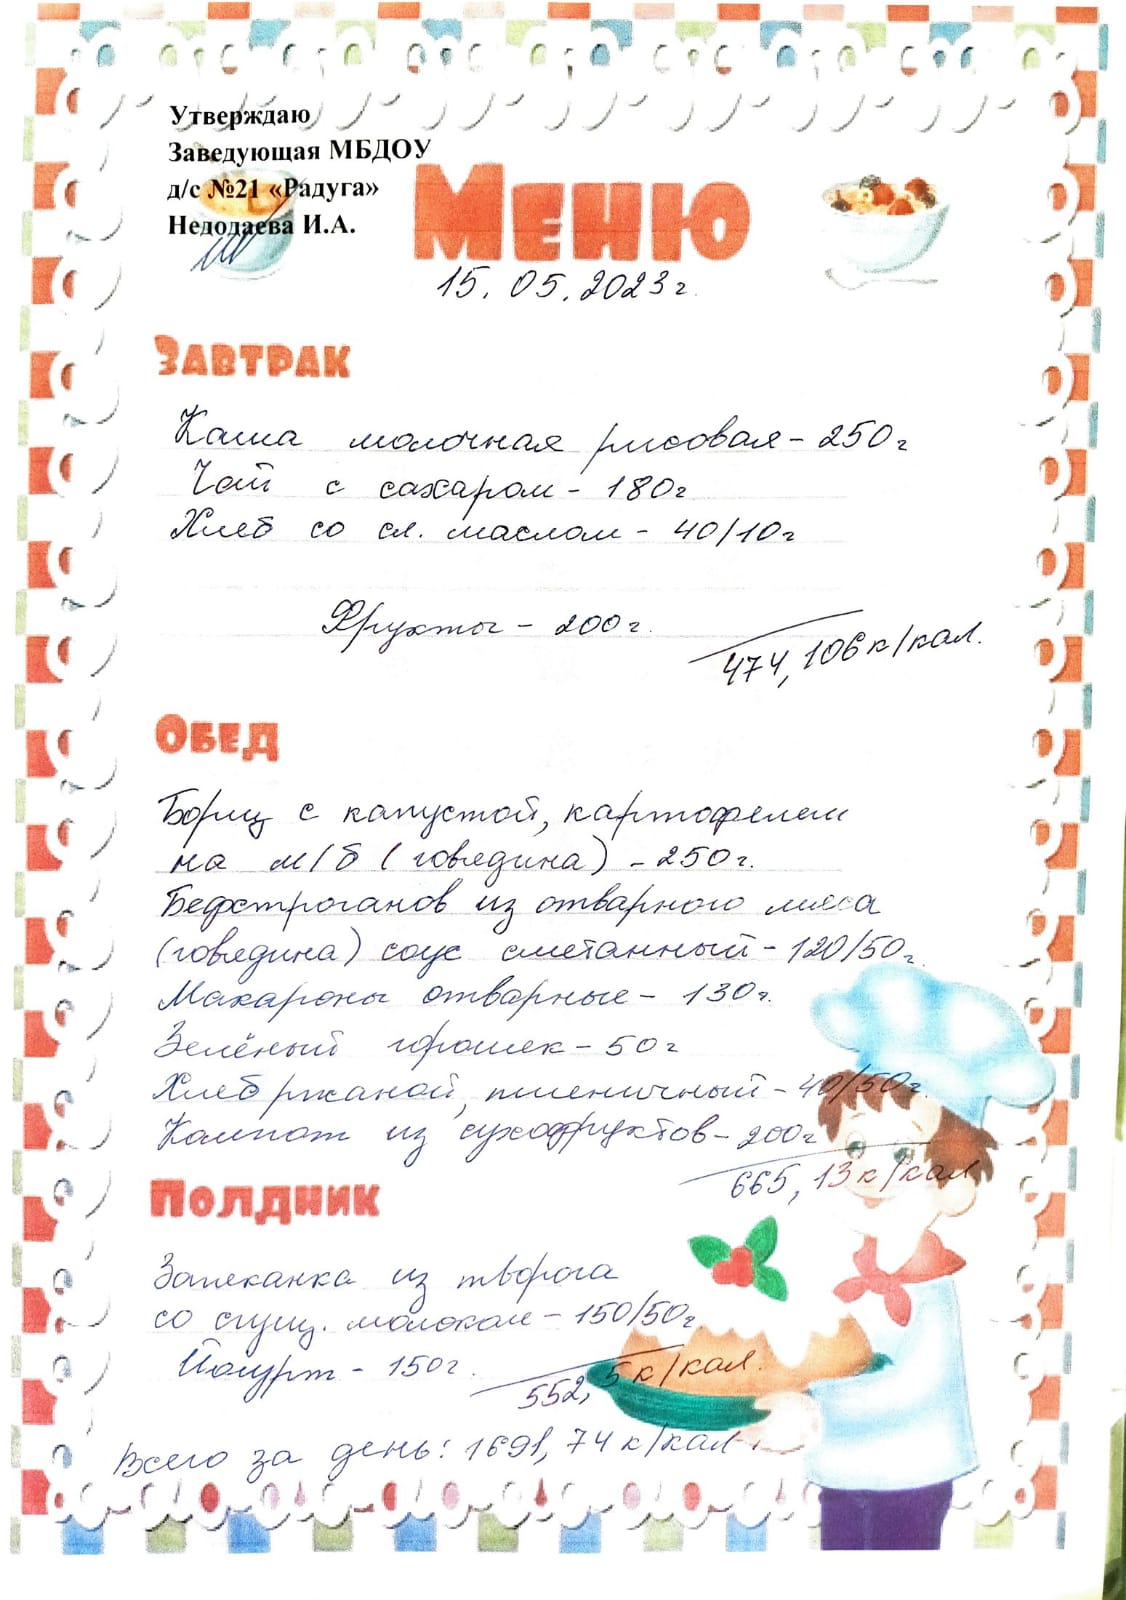 Утверждаю
Заведующая МБДОУ
д/с №21 «Радуга»
Недодаева И.А.
Меню
15.05.2023г.
Завтрак
Каша молочная рисовая - 250г
Чай с сахаром - 180г
Хлеб со сл. маслом - 40/10г
Фрукты - 200г.
474,106 к/кал.
Обед
Борщ с капустой, картофелем
на м/б (говядина) - 250г.
Бефстроганов из отварного мяса
(говядина) соус сметанный - 120/50г.
Макароны отварные - 130г.
Зелёный горошек - 50г
Хлеб ржаной, пшеничный - 40/50г.
Компот из сухофруктов - 200г
665,13 к/кал
Полдник
Запеканка из творога
со сгущ. молоком - 150/50г
Йогурт - 150г.
552,5 к/кал.
Всего за день: 1691,74 к/кал